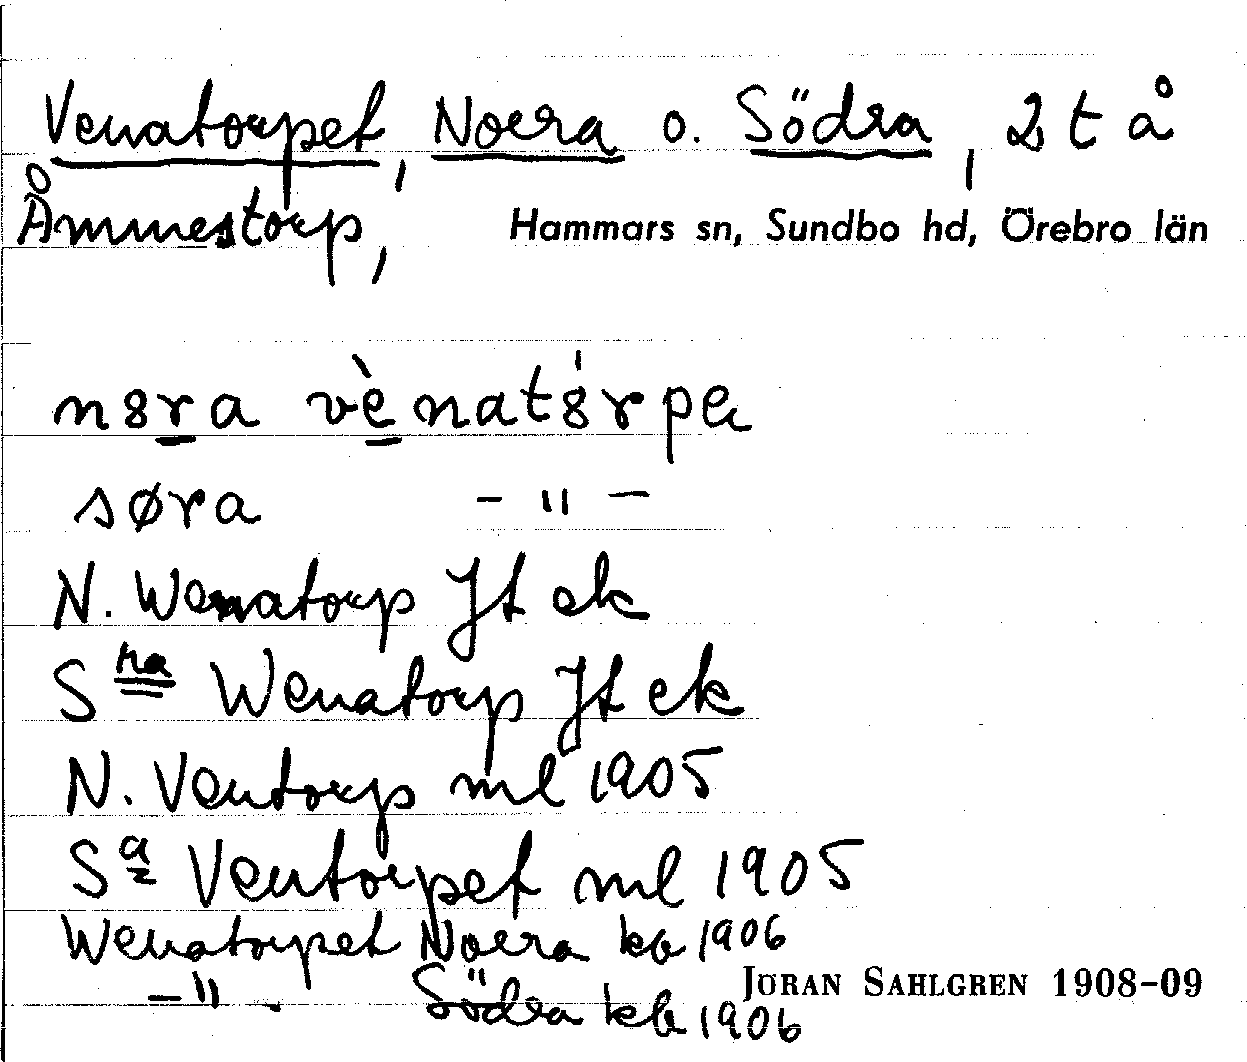 Venatorpet, Norra o. Södra, 2 t å
Åmmestorp, Hammars sn, Sundbo hd, Örebro län
n8ra vènat8́rpa
søra -"-
N. Wenatorp Jt ek
S ra Wenatorp Jt ek
N. Ventorp ml 1905
S a Ventorpet ml 1905
Wenatorpet Norra kb 1906
-"- Södra kb 1906
JÖRAN SAHLGREN 1908-09